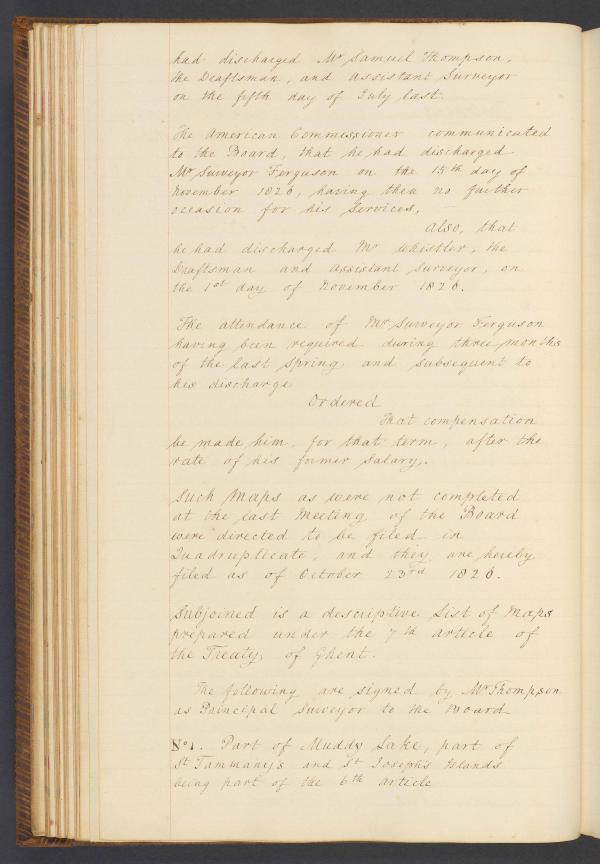 had discharged Mr Samuel Thompson,
the Draftsman, and assistant Surveyor
on the fifth day of July last
The American Commissioner communicated
to the Board, that he had discharged
Mr Surveyor Ferguson on the 15th day of
November 1826, having then no further
occasion for his Services,
Also, that
he had discharged Mr Whistler, the
Draftsman and assistant Surveyor, on
the 1st day of November 1826.
The attendance of Mr Surveyor Ferguson
having been required during three months
of the last Spring, and subsequent to
his discharge
Ordered
That compensation
be made him for that term, after the
rate of his former Salary,.
Such Maps as were not completed
at the last Meeting of the Board
were directed to be filed in
Quadruplicate, and they are hereby
filed as of October 23rd 1826.
Subjoined is a descriptive List of Maps
prepared under the 7th article of
the Treaty, of Ghent.
The following are signed by Mr Thompson
as Principal Surveyor to the Board
No 1. Part of Muddy Lake, part of
St Tammany's and St Joseph's Islands
being part of the 6th article